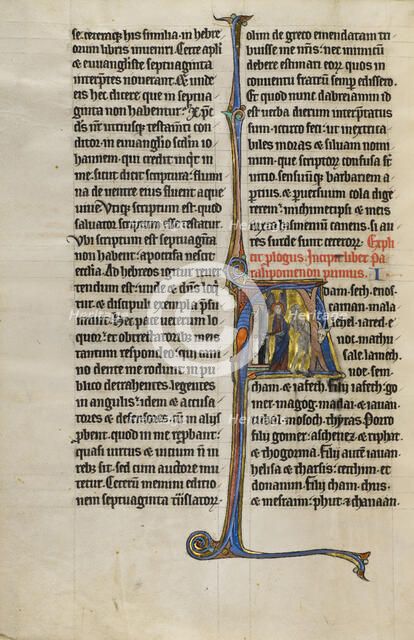 se. ceteraq; his similia. in hebre
orum libris inveniri. Certe apl'i
& evvangliste septuaginta
interp̄tes noverant. & unde
eis hec dicere que in septua
ginta non habentur. Xp̄c
ds̄ nr̄ utriusq; testam̄ti con
ditor. in evvangelio scd̄m io
hannem. qui credit inq̄t in
me. sicut dicit scriptura. flumi
na de ventre eius fluent aque
vive. Vtiq; scriptum est. quod
salvator scriptum esse testatur.
Vbi scriptum est. septuagīta
non habent. apocrifa nescit
ecclia. Ad hebreos igitur rever
tendum est.
& discipuli exempla p̄su
munt. Hec pace veterum lo
quor. & obtrectatorib; meis
tantum respondeo. qui cani
no dente me rodunt. in pu
blico detrahentes. legentes
in angulis. idem & accusa
tores & defensores. cū in aliis
p̄bent. quod in me rep̄bant.
quasi virtus & vitium n̄ in
reb; sit. sed cum auctore mu
tetur. Ceterum memini editio
nem septuaginta t̄nslator̄
olim de greco emendatam tri
buisse me nr̄is. nec inimicū
debere estimari eor̄. quos in
conventu fratrū semp̄ edissero.
Et quod nunc dabreiamin id
est verba dierum interp̄tatus
sum. idcirco feci. ut inextrica
biles moras & silvam nomi
num. que scriptor̄ confusa sr̄
vitio. sensuūq; barbariem a
p̄tius. & p̄ versuum cola dige
rerem. michimetip̄si & meis
iuxta hismenium canens. si au
res surde sunt ceteror̄. Expli
cit p̄logus. Incipit liber pa
ralipomenon primus. I
Adam. seth. enos.
cainan. mala
lehel. iared. e
noc. mathu
sale. lamech.
noe. sem.
cham. & iafeth. Filij iafeth. go
mer. magog. madai. & iavan.
tubal. mosoch. thyras. Porro
filij gomer. aschenez. & riphat.
& thogorma. Filij autē iavan.
helisa. & tharsis. cethim. &
donanim. Filij cham. chus.
& mesraim. phut. & chanaan.